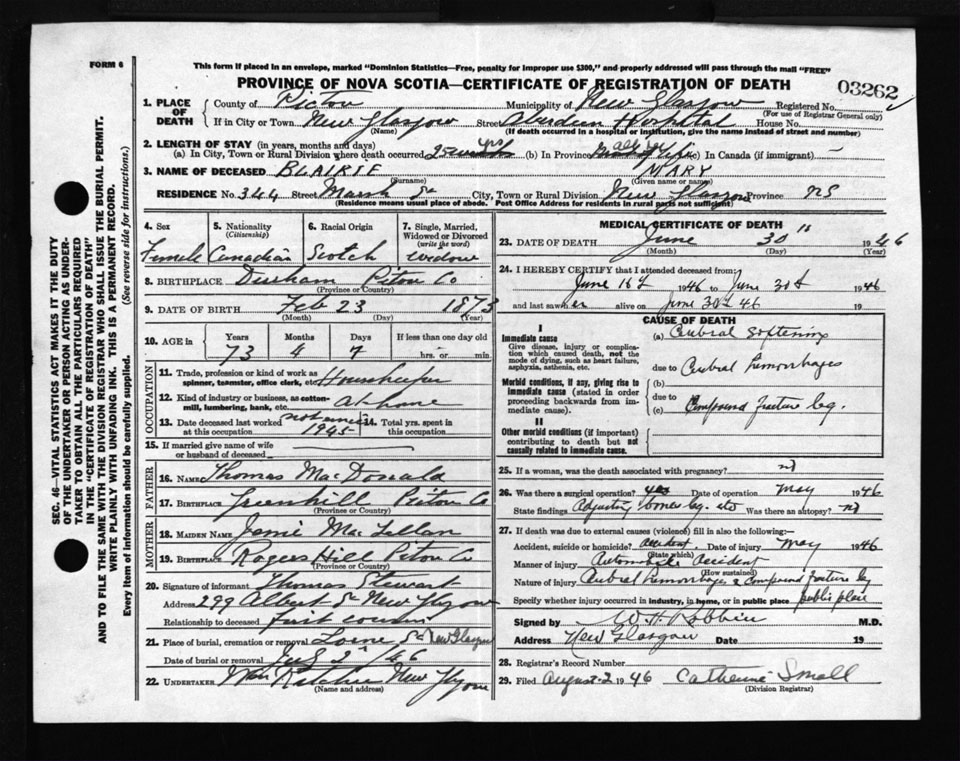 FORM 6
This form if placed in an envelope, marked "Dominion Statistics—Free, penalty for improper use $300," and properly addressed will pass through the mail "FREE"
PROVINCE OF NOVA SCOTIA—CERTIFICATE OF REGISTRATION OF DEATH
03262
1. PLACE OF DEATH
County of Pictou Municipality of New Glasgow Registered No.
(For use of Registrar General only)
If in City or Town New Glasgow Street Aberdeen Hospital House No.
(Name) (If death occurred in a hospital or institution, give the name instead of street and number)
2. LENGTH OF STAY (in years, months and days)
(a) In City, Town or Rural Division where death occurred 25 yrs (b) In Province all of life (c) In Canada (if immigrant) —
3. NAME OF DECEASED BLAIKIE MARY
(Surname) (Given name or names)
RESIDENCE No. 344 Street Marsh St City, Town or Rural Division New Glasgow Province NS
(Residence means usual place of abode. Post Office Address for residents in rural parts not sufficient)
4. Sex 5. Nationality (Citizenship) 6. Racial Origin 7. Single, Married, Widowed or Divorced (write the word)
Female Canadian Scotch widow
8. BIRTHPLACE Durham Pictou Co
(Province or Country)
9. DATE OF BIRTH Feb 23 1873
(Month) (Day) (Year)
10. AGE in Years Months Days If less than one day old
73 4 7 hrs. or min.
OCCUPATION
11. Trade, profession or kind of work as spinner, teamster, office clerk, etc. Housekeeper
12. Kind of industry or business, as cotton-mill, lumbering, bank, etc. At home
13. Date deceased last worked at this occupation 1945 14. Total yrs. spent in this occupation
15. If married give name of wife or husband of deceased
FATHER
16. NAME Thomas MacDonald
17. BIRTHPLACE Greenhill Pictou Co
(Province or Country)
MOTHER
18. MAIDEN NAME Jessie MacLellan
19. BIRTHPLACE Rogers Hill Pictou Co
(Province or Country)
20. Signature of informant Thomas Stewart
Address 299 Albert St New Glasgow
Relationship to deceased first cousin
21. Place of burial, cremation or removal Lorne St New Glasgow
Date of burial or removal July 2 /46
22. UNDERTAKER Wm Ritchie New Glasgow
(Name and address)
MEDICAL CERTIFICATE OF DEATH
23. DATE OF DEATH June 30th 1946
(Month) (Day) (Year)
24. I HEREBY CERTIFY that I attended deceased from:
June 16th 1946 to June 30th 1946
and last saw her alive on June 30th 46 19
CAUSE OF DEATH
I
Immediate cause
Give disease, injury or complication which caused death, not the mode of dying, such as heart failure, asphyxia, asthenia, etc.
(a) Cerebral Softening
due to Cerebral hemorrhages
Morbid conditions, if any, giving rise to immediate cause (stated in order proceeding backwards from immediate cause).
(b)
due to
(c) Compound fracture leg.
II
Other morbid conditions (if important) contributing to death but not causally related to immediate cause.
25. If a woman, was the death associated with pregnancy? no
26. Was there a surgical operation? yes Date of operation May 1946
State findings Adjusting bones leg. etc Was there an autopsy? no
27. If death was due to external causes (violence) fill in also the following:—
Accident, suicide or homicide? accident Date of injury May 1946
(State which)
Manner of injury Automobile accident
(How sustained)
Nature of injury Cerebral hemorrhages & Compound fracture leg
Specify whether injury occurred in industry, in home, or in public place public place
Signed by M.D.
Address New Glasgow Date 19
28. Registrar's Record Number
29. Filed August 2 1946 Catherine Small
(Division Registrar)
SEC. 46—VITAL STATISTICS ACT MAKES IT THE DUTY OF THE UNDERTAKER OR PERSON ACTING AS UNDERTAKER TO OBTAIN ALL THE PARTICULARS REQUIRED IN THE "CERTIFICATE OF REGISTRATION OF DEATH" AND TO FILE THE SAME WITH THE DIVISION REGISTRAR WHO SHALL ISSUE THE BURIAL PERMIT.
WRITE PLAINLY WITH UNFADING INK. THIS IS A PERMANENT RECORD.
Every item of information should be carefully supplied. (See reverse side for instructions.)